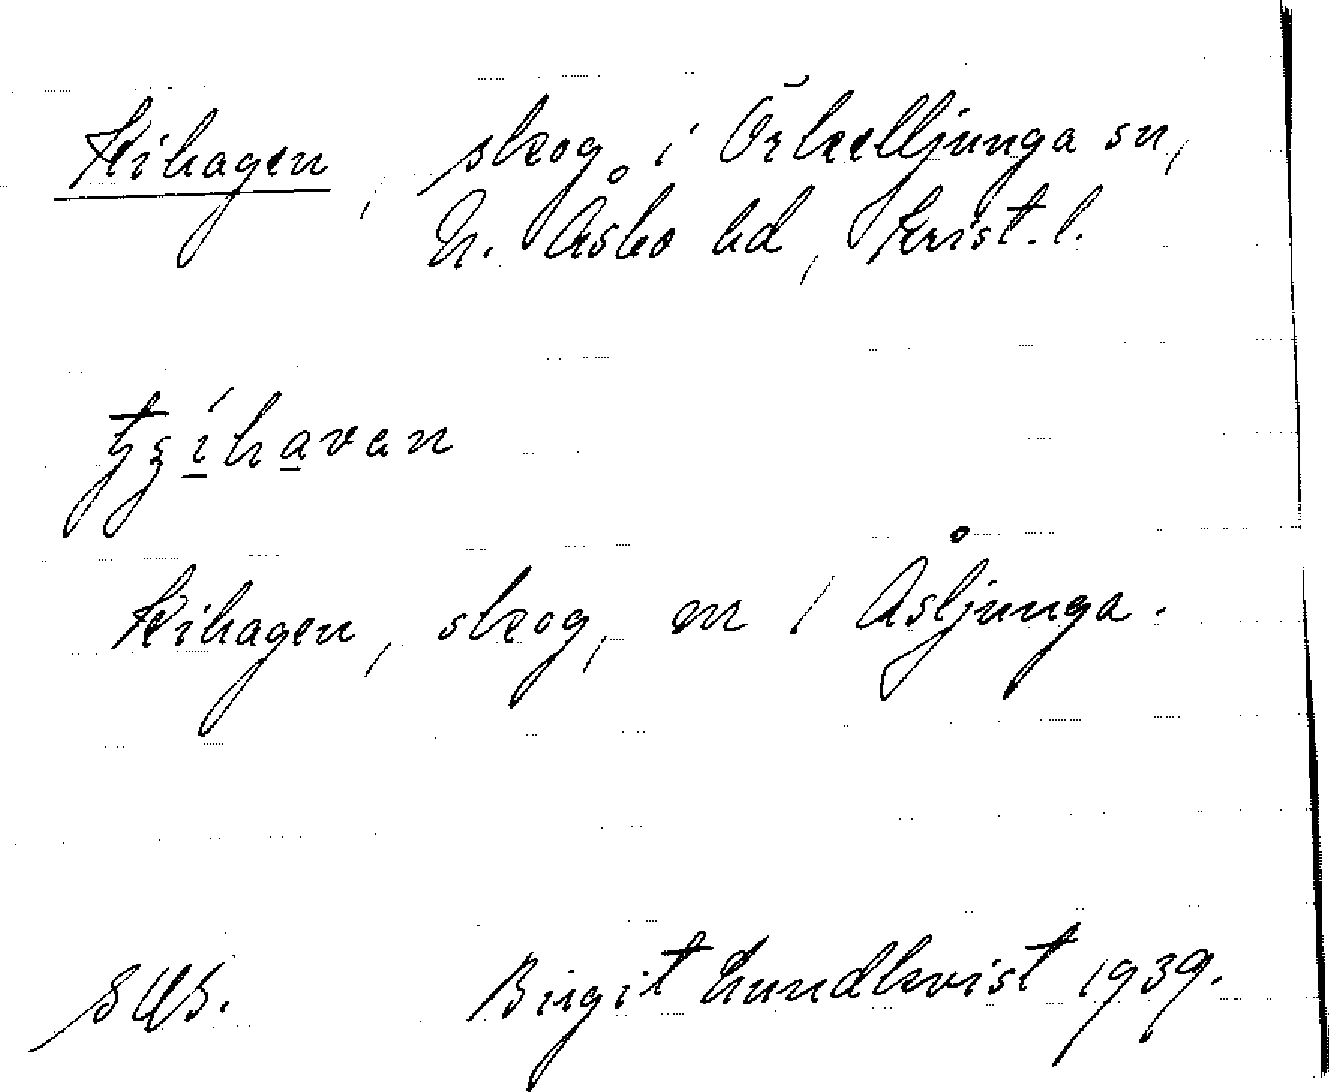 Kihagen, skog i Örkelljunga sn,
N. Åsbo hd, Krist. l.
Kihagen, skog, en i Åsljunga.
Birgit Lundkvist 1939.